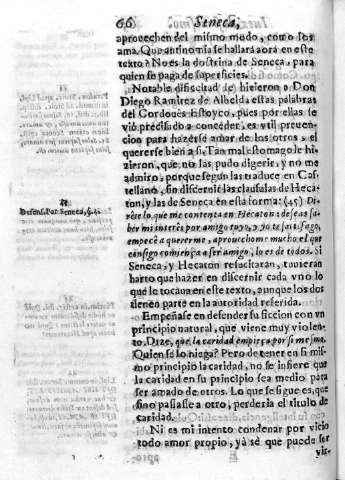 66 Seneca,
aprovechen del mismo modo, como los
ama. Que antinomia se hallarà aora en este
texto? No es la doctrina de Seneca, para
quien se paga de superficies.
Notable dificultad se hizieron a Don
Diego Ramirez de Albelda estas palabras
del Cordovès Estoyco, pues por ellas se
viò precisado a conceder, es vtil preven-
cion para hazerse amar de los otros, el
quererse bien a sì. Tan mal estomago le hi-
zieron, que no las pudo digerir, y no me
admiro, porque segun las traduce en Cas-
tellano, sin discernir las clausulas de Heca-
ton, y las de Seneca en esta forma: (45) Di-
rète lo que me contenta en Hecaton: deseas sa-
ber mi interès por amigo tuyo, y yo te satisfago,
empecè a quererme, aprovechome mucho, el que
consigo comiença a ser amigo, lo es de todos. Si
Seneca, y Hecaton resucitàran, tuvieran
harto que hazer en discernir cada vno lo
que le tocava en este texto, aunque los dos
tienen parte en la autoridad referida.
Empeñase en defender su ficcion con vn
principio natural, que viene muy violen-
to. Dize, que la caridad empieza por si mesma.
Quien se lo niega? Pero de tener en si mis-
mo principio la caridad, no se infiere que
la caridad en su principio sea medio para
ser amado de otros. Lo que se sigue es, que
si no passasse a otro, perderia el titulo de
caridad.
Ni es mi intento condenar por vicio
todo amor propio, yà sè que puede ser
vir-
Defensa por Seneca, §. 4.